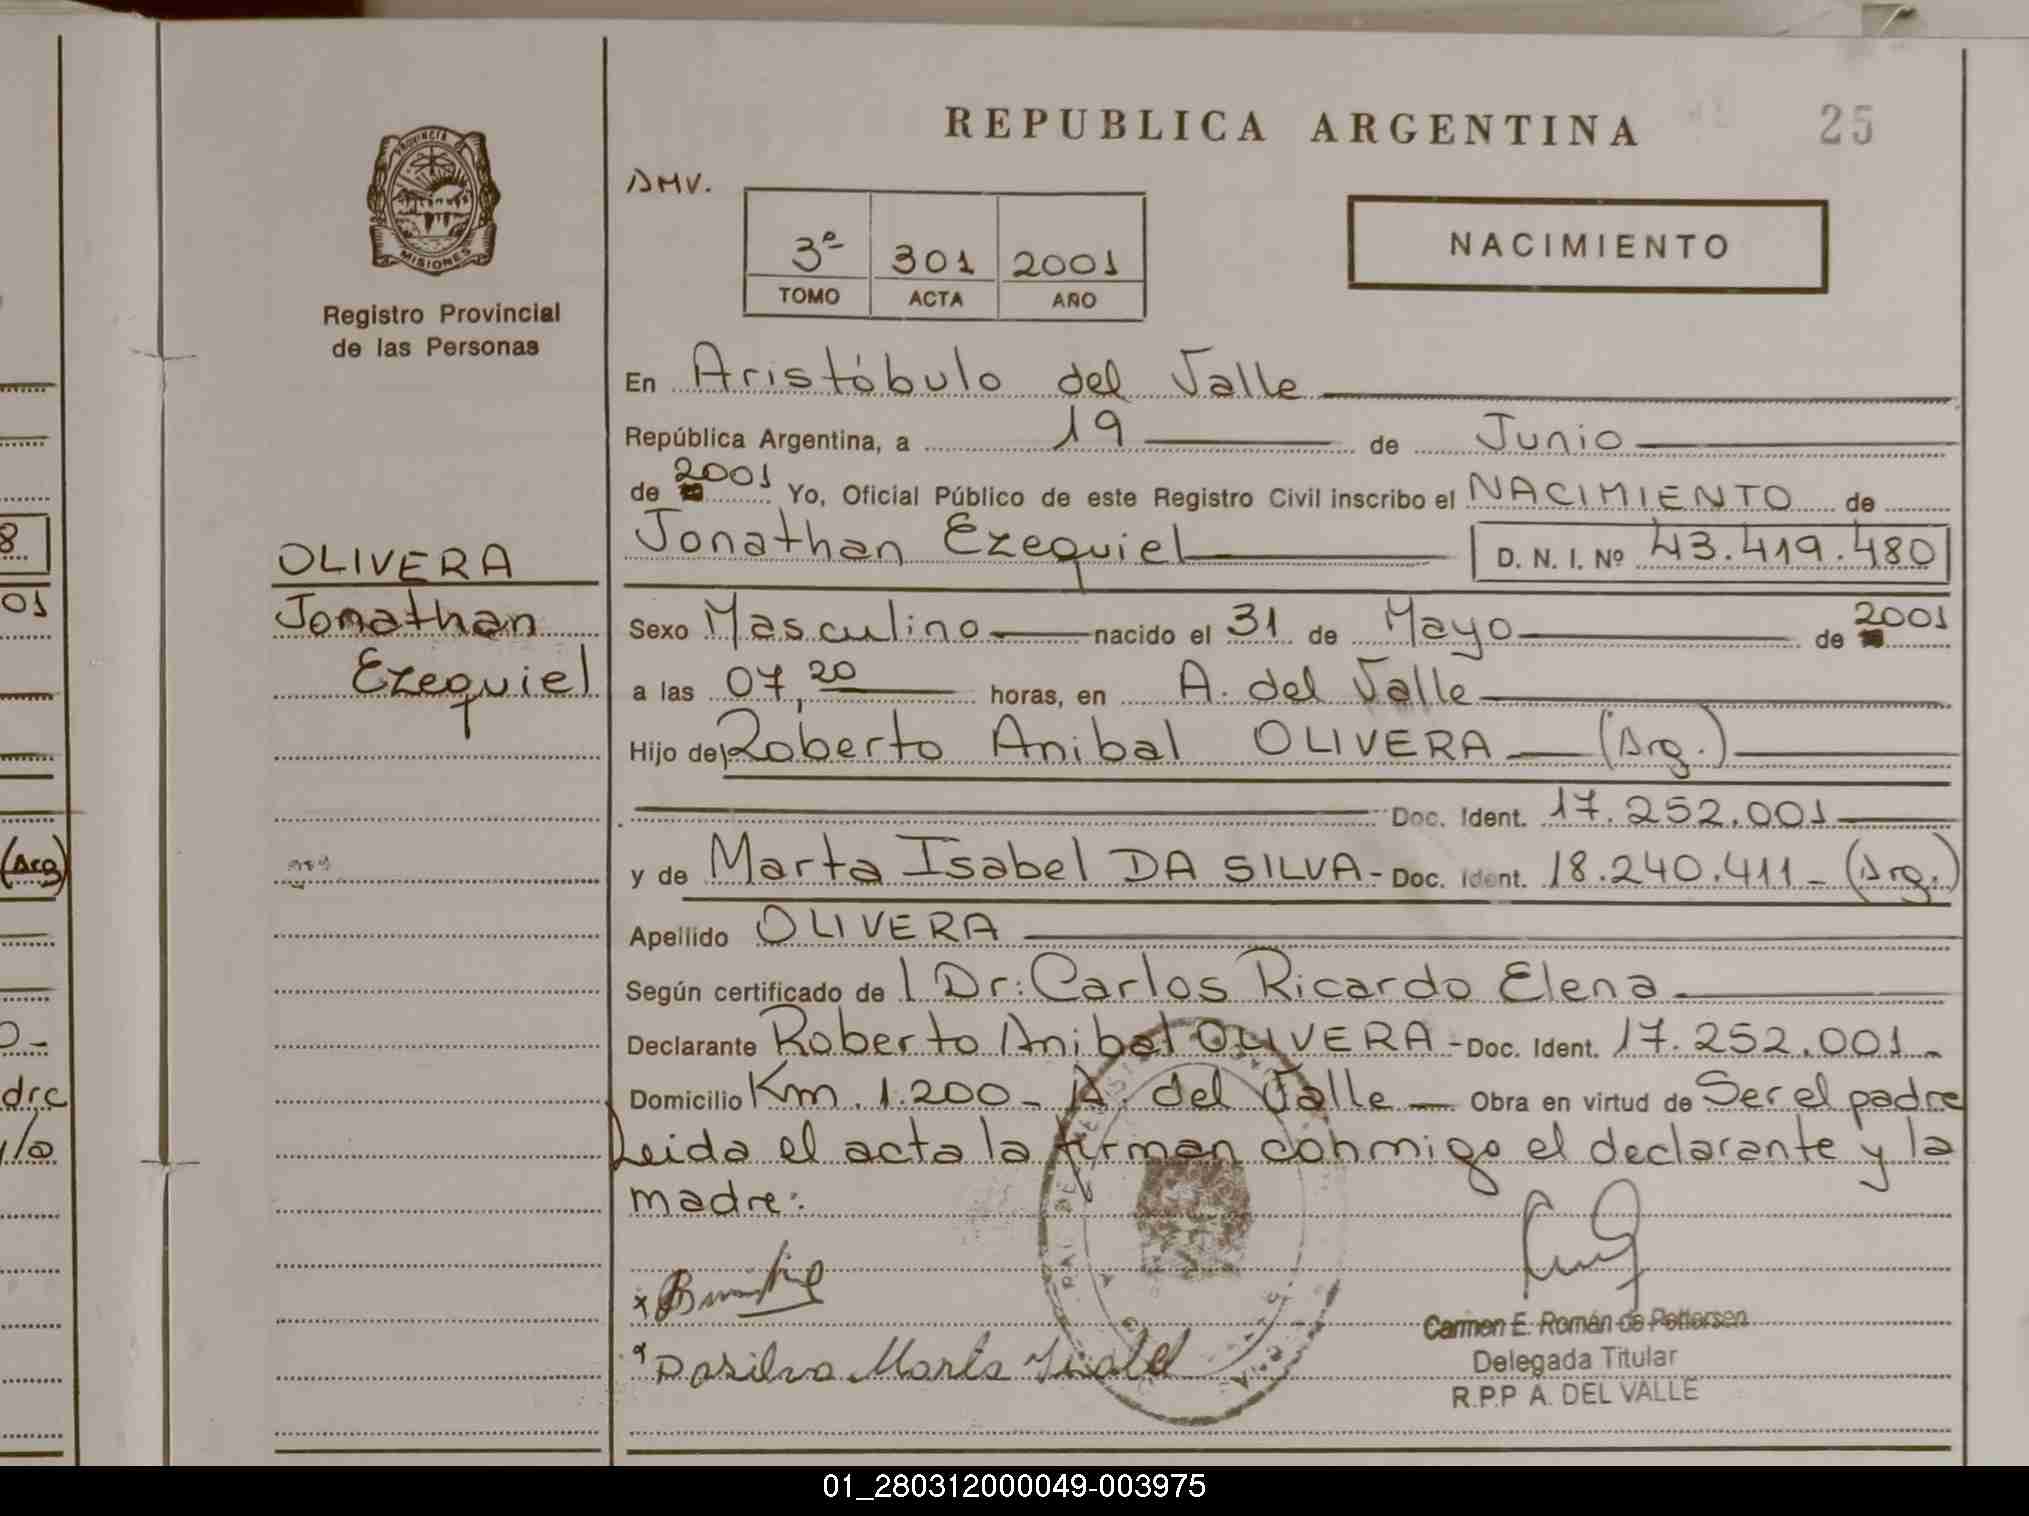 REPUBLICA ARGENTINA
25
PROVINCIA
MISIONES
Registro Provincial
de las Personas
AMV.
3ª 301 2001
TOMO ACTA AÑO
NACIMIENTO
En Aristóbulo del Valle
República Argentina, a 19 de Junio
de 2001 Yo, Oficial Público de este Registro Civil inscribo el NACIMIENTO de
Jonathan Ezequiel D. N. I. Nº 43.419.480
OLIVERA
Jonathan
Ezequiel
Sexo Masculino nacido el 31 de Mayo de 2001
a las 07,20 horas, en A. del Valle
Hijo de Roberto Anibal OLIVERA (Arg.)
Doc. Ident. 17.252.001
y de Marta Isabel DA SILVA - Doc. Ident. 18.240.411 - (Arg.)
Apellido OLIVERA
Según certificado del Dr: Carlos Ricardo Elena
Declarante Roberto Anibal OLIVERA - Doc. Ident. 17.252.001 -
Domicilio Km. 1.200 - A. del Valle - Obra en virtud de Ser el padre
Leida el acta la firman conmigo el declarante y la
madre:
Dasilva Marta Isabel
Carmen E. Román de Pettersen
Delegada Titular
R.P.P A. DEL VALLE
8
01
(Arg)
o -
dre
y/a
01_280312000049-003975